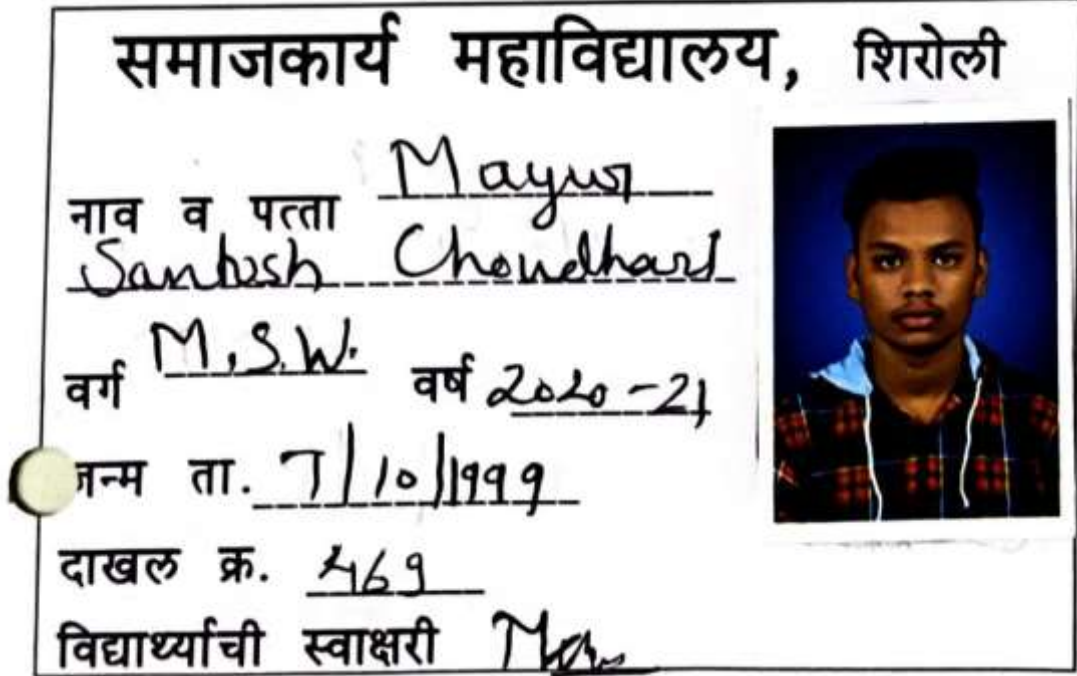 समाजकार्य महाविद्यालय, शिरोली
नाव व पत्ता Mayur
Santosh Choudhari
वर्ग M.S.W. वर्ष 2020-21
जन्म ता. 7/10/1999
दाखल क्र. 469
विद्यार्थ्याची स्वाक्षरी